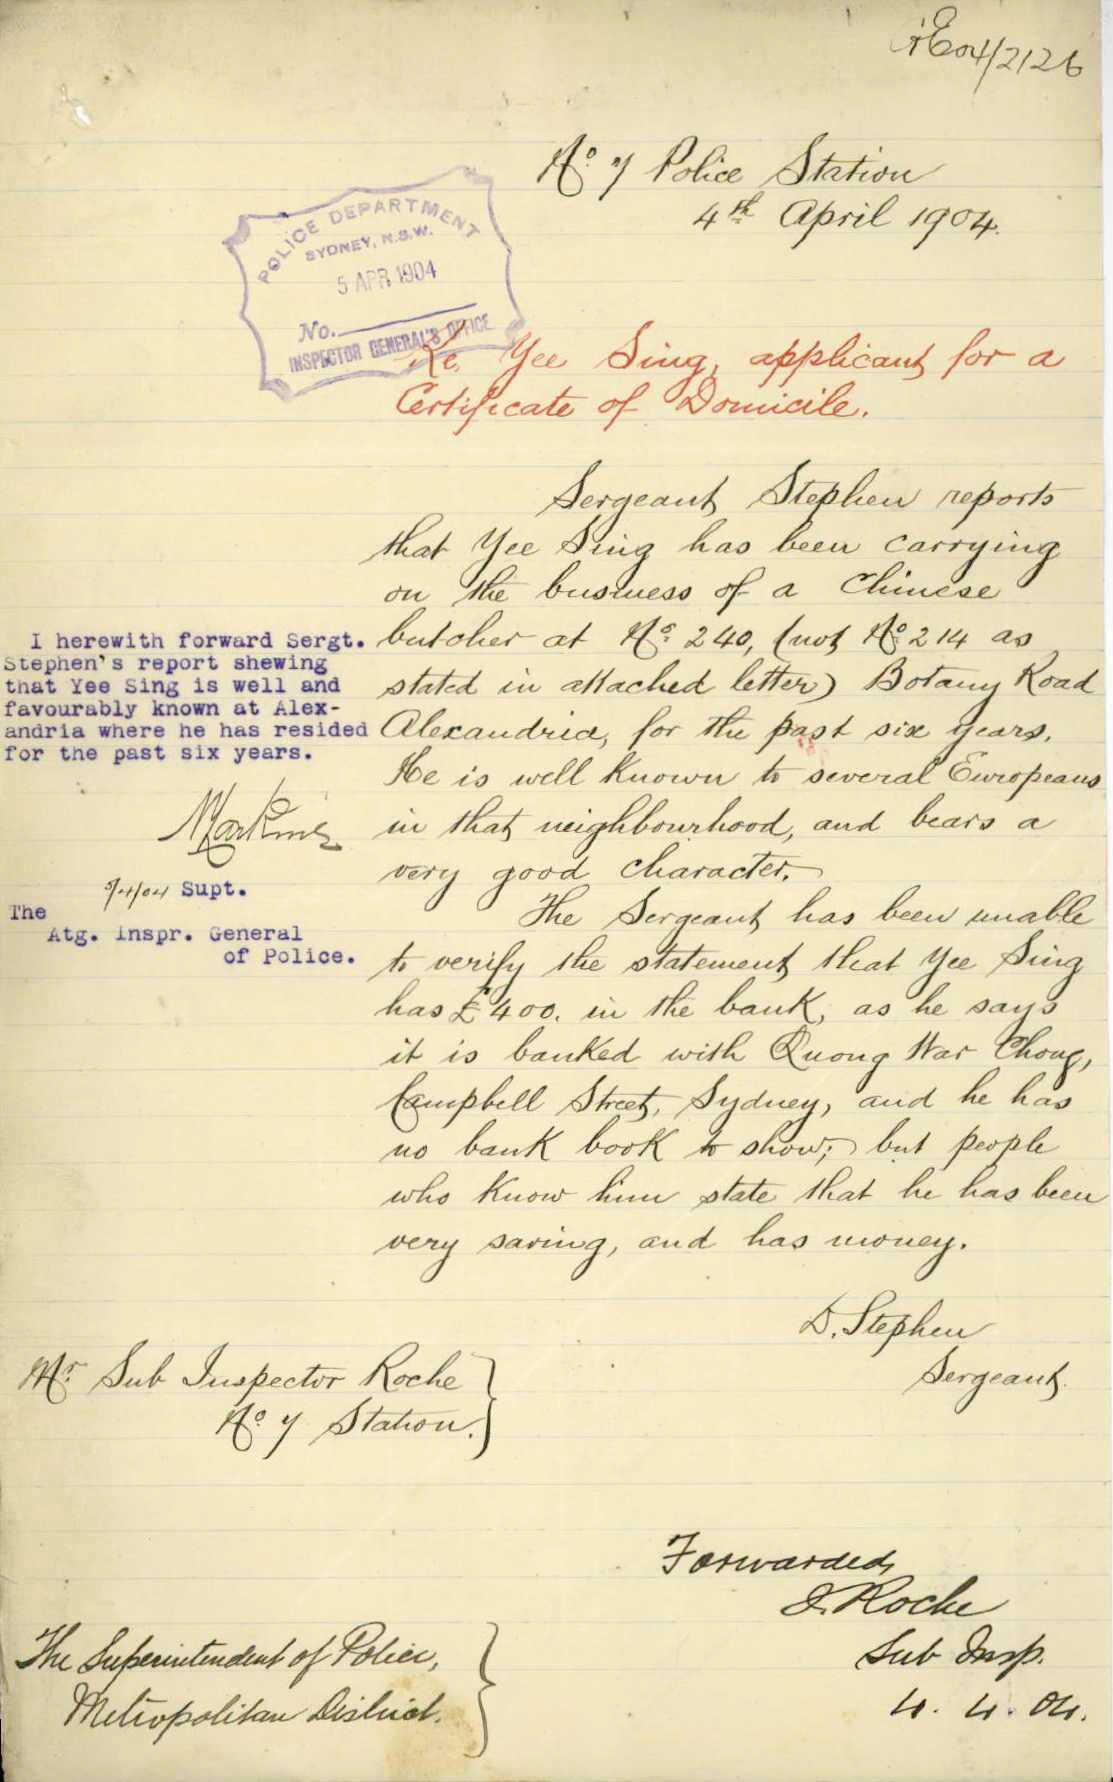 04/2126
No 7 Police Station
4th April 1904.
POLICE DEPARTMENT
SYDNEY, N.S.W.
5 APR 1904
No.
INSPECTOR GENERAL'S OFFICE
Re Yee Sing, applicant for a
Certificate of Domicile.
Sergeant Stephen reports
that Yee Sing has been carrying
on the business of a Chinese
butcher at No. 240, (not No 214 as
stated in attached letter) Botany Road
Alexandria, for the past six years.
He is well known to several Europeans
in that neighbourhood, and bears a
very good character.
The Sergeant has been unable
to verify the statement that Yee Sing
has £400. in the bank, as he says
it is banked with Quong War Chong,
Campbell Street, Sydney, and he has
no bank book to show; but people
who know him state that he has been
very saving, and has money.
D. Stephen
Sergeant.
Mr. Sub Inspector Roche
No. 7 Station.
I herewith forward Sergt.
Stephen's report shewing
that Yee Sing is well and
favourably known at Alex-
andria where he has resided
for the past six years.
5/4/04 Supt.
The
Atg. Inspr. General
of Police.
Forwarded,
J. Roche
Sub Insp.
4. 4. 04.
The Superintendent of Police,
Metropolitan District.